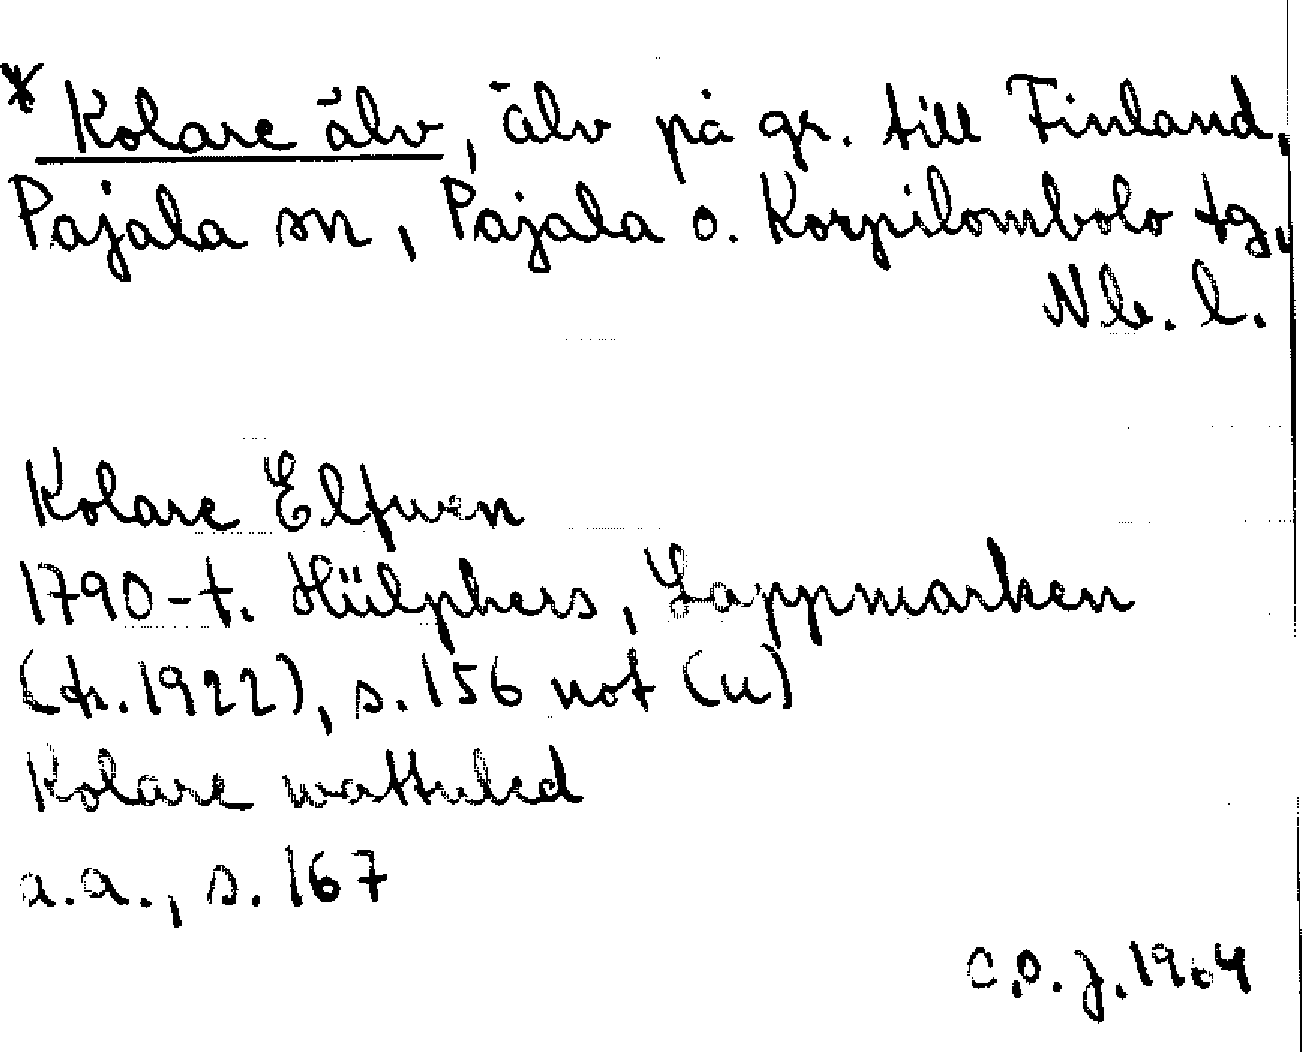 * Kolare älv, älv på gr. till Finland,
Pajala sn, Pajala o. Korpilombolo tg,
Nb. l.
Kolare Elfwen
1790-t. Hülphers, Lappmarken
(tr. 1922), s. 156 not (u)
Kolare wattuled
a.a., s. 167
C.O.J. 1964